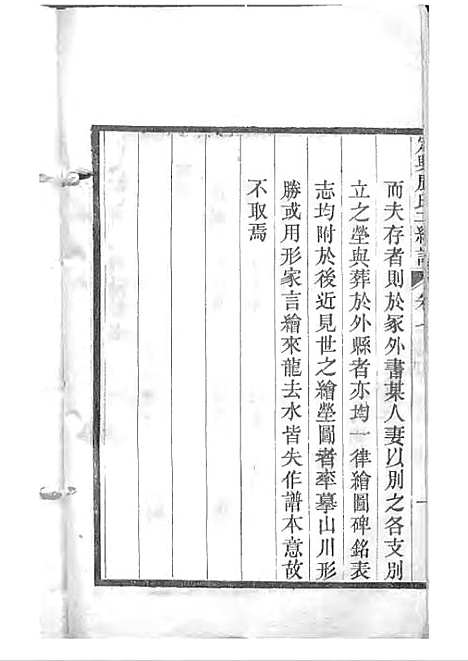 而夫存者則於冢外書某人妻以別之各支別
立之塋與葬於外縣者亦均一律繪圖碑銘表
志均附於後近見世之繪塋圖者率摹山川形
勝或用形家言繪來龍去水皆失作譜本意故
不取焉